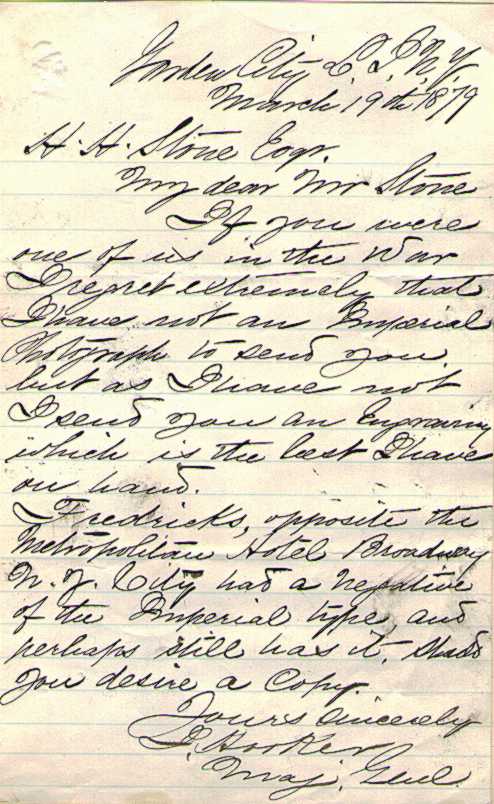 Garden City L. I. N. Y.
March 19th 1879
H. H. Stone Esqr.
My dear Mr Stone
If you were
one of us in the War
I regret extremely that
I have not an Imperial
Photograph to send you
but as I have not
I send you an Engraving
which is the best I have
on hand.
Fredricks, opposite the
Metropolitan Hotel Broadway
N. Y. City had a negative
of the Imperial type and
perhaps still has it,
you desire a Copy.
Yours sincerely
J. Hooker
Maj. Genl.